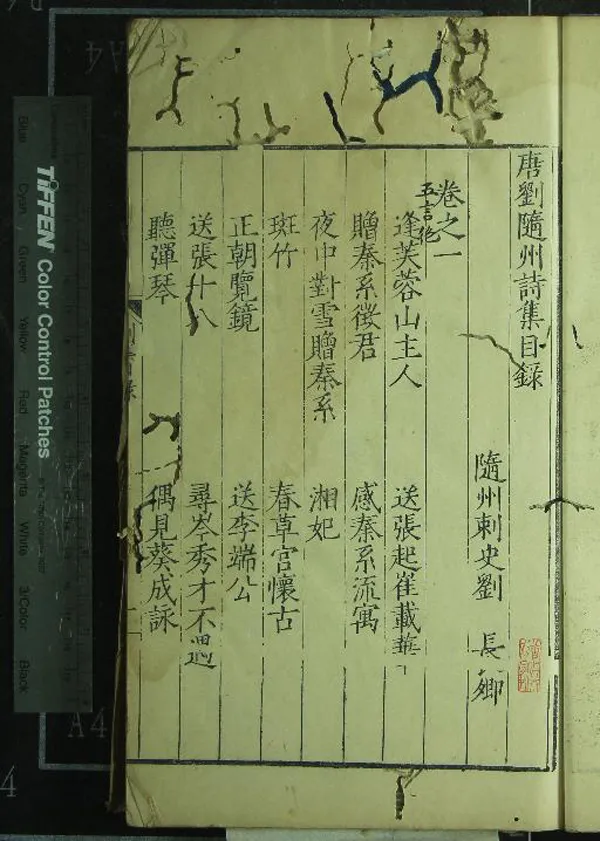 唐劉隨州詩集目錄
隨州刺史劉 長卿
卷之一
五言絕
逢芙蓉山主人 送張起崔載華
贈秦系徵君 感秦系流寓
夜中對雪贈秦系 湘妃
斑竹 春草宮懷古
正朝覽鏡 送李端公
送張十八 尋岑秀才不遇
聽彈琴 偶見葵成詠
TIFFEN Color Control Patches
Blue
Cyan
Green
Yellow
Red
Magenta
White
3/Color
Black
A4
A4